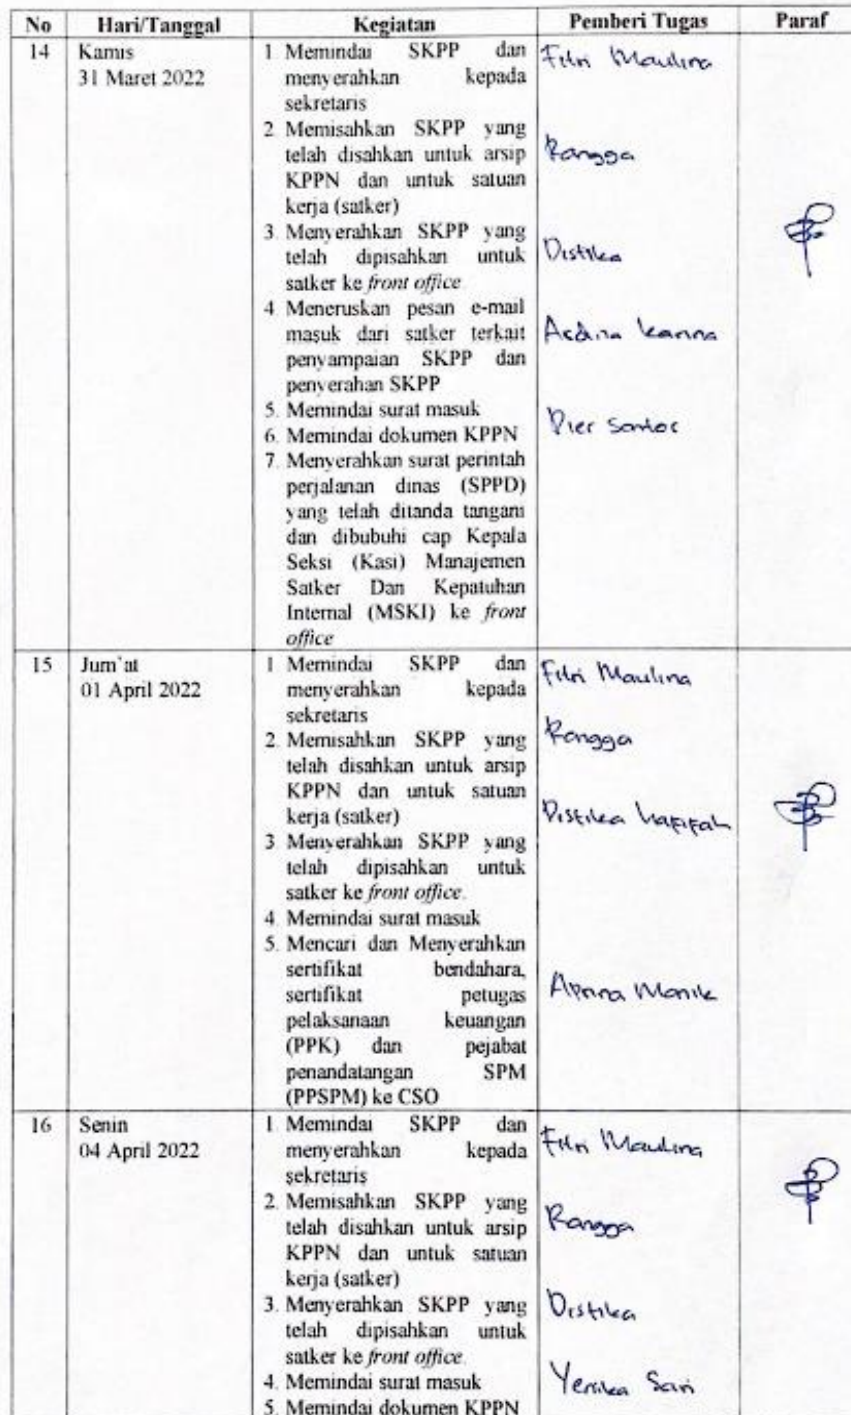 No Hari/Tanggal Kegiatan Pemberi Tugas Paraf
14 Kamis
31 Maret 2022
1 Memindai SKPP dan
menyerahkan kepada
sekretaris
2. Memisahkan SKPP yang
telah disahkan untuk arsip
KPPN dan untuk satuan
kerja (satker)
3. Menyerahkan SKPP yang
telah dipisahkan untuk
satker ke front office.
4. Meneruskan pesan e-mail
masuk dari satker terkait
penyampaian SKPP dan
penyerahan SKPP
5. Memindai surat masuk
6. Memindai dokumen KPPN
7. Menyerahkan surat perintah
perjalanan dinas (SPPD)
yang telah ditanda tangani
dan dibubuhi cap Kepala
Seksi (Kasi) Manajemen
Satker Dan Kepatuhan
Internal (MSKI) ke front
office
Fitri Maulina
Rangga
Distika
Pier Santos
15 Jum'at
01 April 2022
1 Memindai SKPP dan
menyerahkan kepada
sekretaris
2. Memisahkan SKPP yang
telah disahkan untuk arsip
KPPN dan untuk satuan
kerja (satker)
3 Menyerahkan SKPP yang
telah dipisahkan untuk
satker ke front office.
4. Memindai surat masuk
5. Mencari dan Menyerahkan
sertifikat bendahara,
sertifikat petugas
pelaksanaan keuangan
(PPK) dan pejabat
penandatangan SPM
(PPSPM) ke CSO
Fitri Maulina
Rangga
Distika Hafifah
Manik
16 Senin
04 April 2022
1. Memindai SKPP dan
menyerahkan kepada
sekretaris
2. Memisahkan SKPP yang
telah disahkan untuk arsip
KPPN dan untuk satuan
kerja (satker)
3. Menyerahkan SKPP yang
telah dipisahkan untuk
satker ke front office.
4. Memindai surat masuk
5. Memindai dokumen KPPN
Fitri Maulina
Rangga
Distika
Yersika Sari